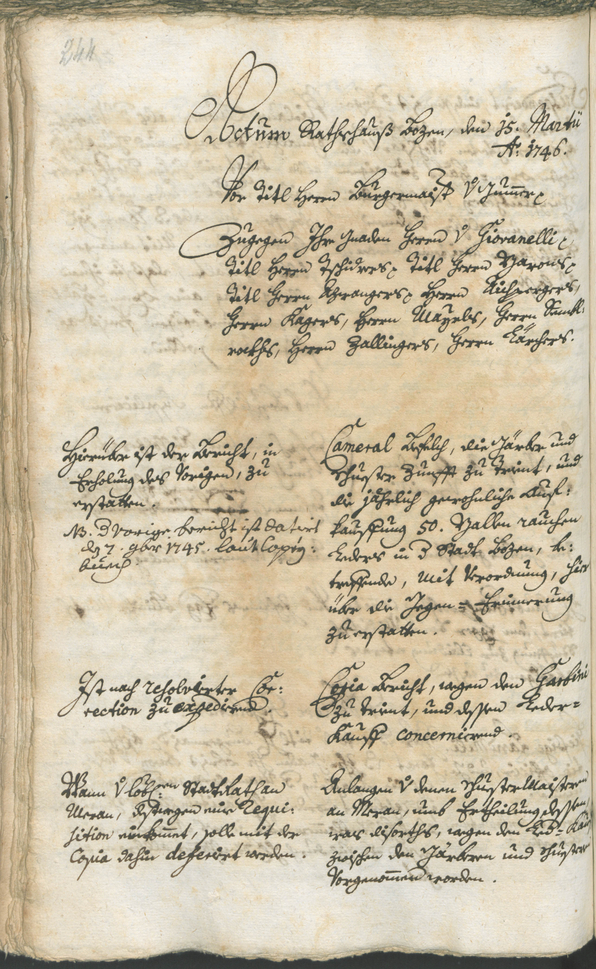 244
Actum Rathshauß Bozen, den 15. Martii
A: 1746.
Vor Titl Herrn Burgermaist: v Gummer
Zugegen Ihr Gnaden Herrn v Giovanelli
Titl Herrn Tschurers, Titl Herrn
Titl Herrn Herrn
Herrn Kagers, Herrn Mayrls, Herrn
raths, Herrn Zallingers, Herrn Kärchers.
Hierüber ist der Bericht, in
Erholung des Vorigen, zu
erstatten.
NB. D vorige bericht ist datirt
dg 7. 9ber 1745. laut Copey:
buech
Cameral Befelch, die Gärber und
Schuster Zunfft zu Trient, und
die jährlich gewohnliche Auf:
kauffung 50. Pallen rauchen
Leders in d Statt Bozen, be:
treffende, mit Verordnung, hier
über die Gegen-Erinerung
zu erstatten.
Ist nach resolvirter Cor:
rection zu expedirend.
Copia Bericht, wegen den
zu Trient, und dessen Leder-
Kauff concernirend.
Wann v löben Stadt Rath an
Meran, desswegen eine Requi:
sition einkomet, solle mit der
Copia dahin deferirt werden.
Anlangen v denen Schuster Maistern
an Meran, umb Ertheilung dessen,
was diseorths, wegen den Led-Kauf
zwischen den Gärberen und Schuster
Vorgenommen worden.